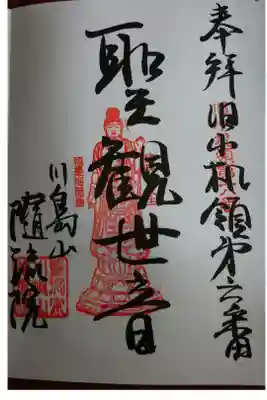 奉拝旧小机領第六番
聖觀世音
川島山
隨流院